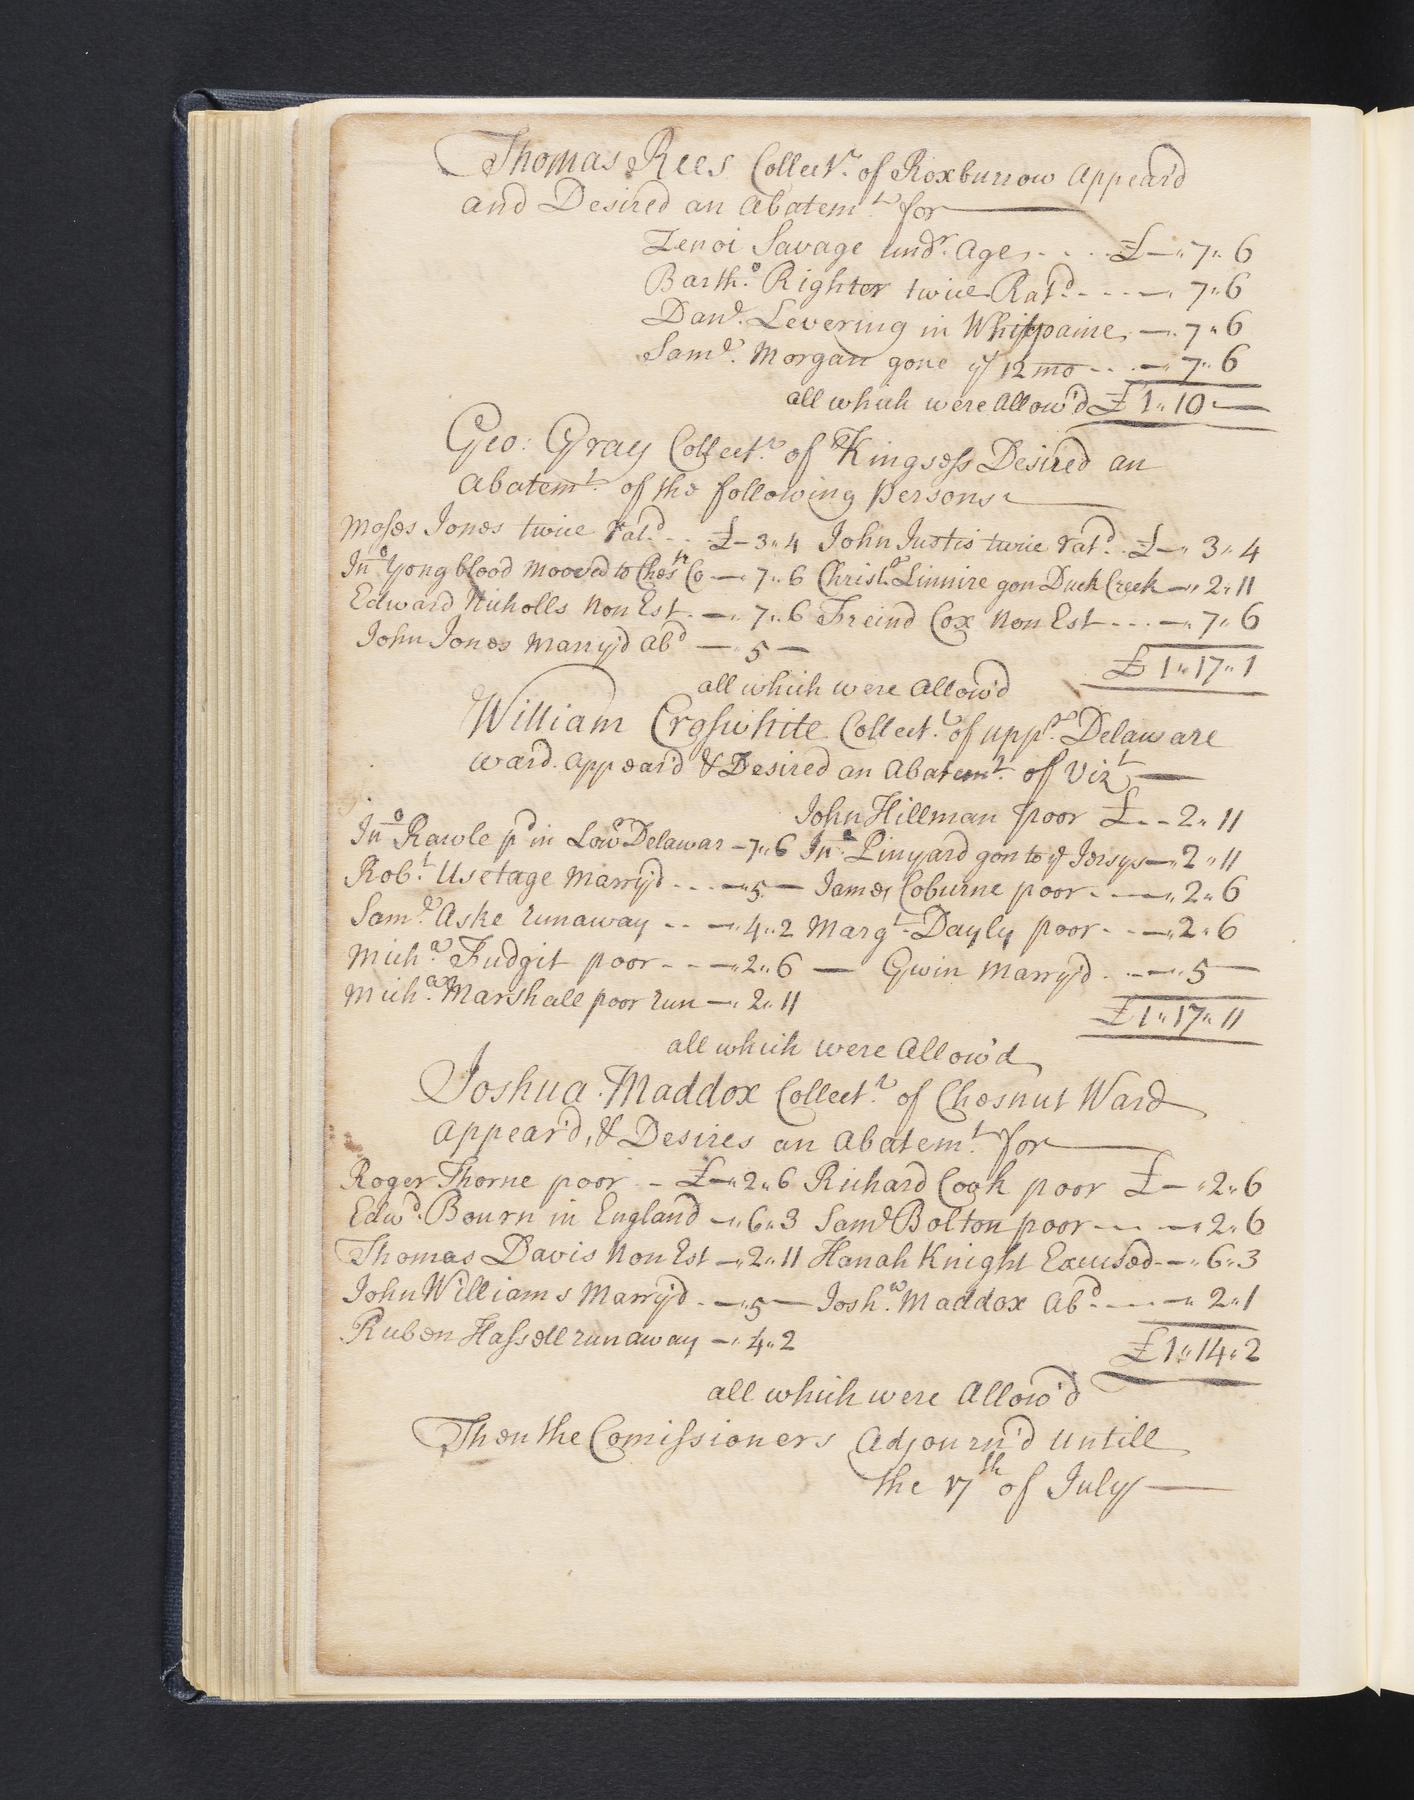 Thomas Rees Collectr. of Roxburrow Appear'd
and Desired an Abatemt. for
Zenoi Savage undr. Age £—"7"6
Bartho. Righter twice Rat'd — 7"6
Danl. Levering in Whitpaine — 7"6
Saml. Morgan gone ye 12 mo — 7"6
all which were Allow'd £1"10"—
Geo: Gray Collectr. of Kingsess Desired an
Abatemt. of the following Persons
Moses Jones twice rat'd £—3"4 John Justis twice rat'd £—"3"4
Jno. Yongblood mooved to Chesr Co —"7"6 Christr. Linnire gon Duck Creek —"2"11
Edward Nicholls Non Est —"7"6 Freind Cox Non Est —"7"6
John Jones Marry'd Abd —"5—
£1"17"1
all which were Allow'd
William Croswhite Collectr. of uppr. Delaware
ward Appear'd & Desired an Abatemt. of Vizt
John Hillman poor £—2"11
Jno. Rawle pd in Lowr Delawar —7"6 Jno. Pinyard gon to ye Jersys —"2"11
Robt. Usetage Marry'd —"5— James Coburne poor —"2"6
Saml. Aske runaway —"4"2 Margt. Dayly poor —"2"6
Micha. Fudgit poor —"2"6 — Gwin Marry'd —"5—
Micha. Marshall poor run —"2"11
£1"17"11
all which were Allow'd
Joshua Maddox Collectr. of Chesnut Ward
Appear'd, & Desires an Abatemt. for
Roger Thorne poor £—"2"6 Richard Cook poor £—"2"6
Edwd. Bourn in England —"6"3 Saml Bolton poor —"2"6
Thomas Davis Non Est —"2"11 Hanah Knight Excused —"6"3
John Williams Marry'd —"5— Josha. Maddox Abd. —"2"1
Ruben Hassell runaway —"4"2
£1"14"2
all which were Allow'd
Then the Comissioners Adjourn'd untill
the 17th of July